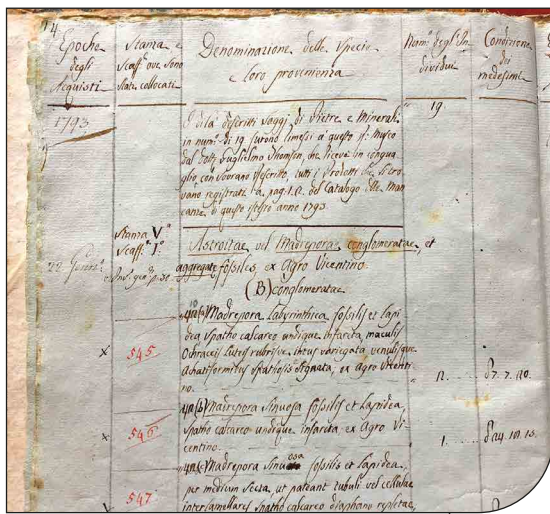 14
Epoche
degli
Acquisti
Stanza e
Scaff.' ove sono
state collocati
Denominazione delle Specie
e loro provenienza
Num.° degl'In
dividui
Condizione
dei
medesimi
1793
descritti Saggi di Pietre e Minerali
in num.° di 19 furono rimessi a questo R. Museo
dal Dott. Guglielmo Thomson, che riceve in congua
glio, con Sovrano Rescritto, tutti i Prodotti che si tro
vano registrati a pag. 1.a del Catalogo delle Man
canze di questo istesso anno 1793.
19
Stanza V.a
Scaff.e I.o
22 Genn.o
Astroitae vel Madreporae conglomeratae, et
aggregatae fossiles, ex Agro Vicentino.
(B) conglomeratae
x
545
(a) Madrepora Labyrinthica fossilis et Lapi
dea spatho calcareo undique infarcta, maculis
Ochraceis luteis rubrisve intus variegata, venulisque
Achatiformibus spathosis signata; ex agro Vicenti
no.
12
7. 7. 120.
x
546
(b) Madrepora Sinuosa fossilis et Lapidea,
spatho calcareo undique infarcta; ex Agro Vi
centino.
1
24. 101. 15.
547
Madrepora Sinuosa fossilis et Lapidea,
per medium secta, ut pateant tubuli vel cellulae
interlamellares spatho calcareo diaphano repletae,